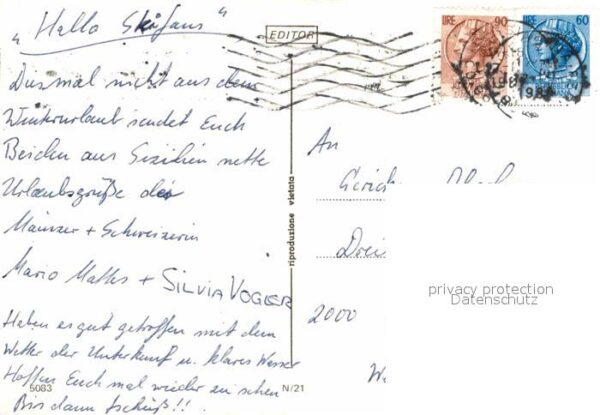 "Hallo Skifans"
EDITOR
LIRE 90
LIRE 60
Diesmal nicht aus dem
Winterurlaub sendet Euch
Beiden aus Sizilien nette
Urlaubsgrüße der
Mainzer + Schweizerin
Mario Mattes + SILVIA VOGLER
Haben es gut getroffen mit dem
Wetter der Unterkunft u. klares Wasser
Hoffen Euch mal wieder zu sehen
Bis dann tschüß!!
5083
N/21
riproduzione vietata
An
Drei
2000
privacy protection
Datenschutz